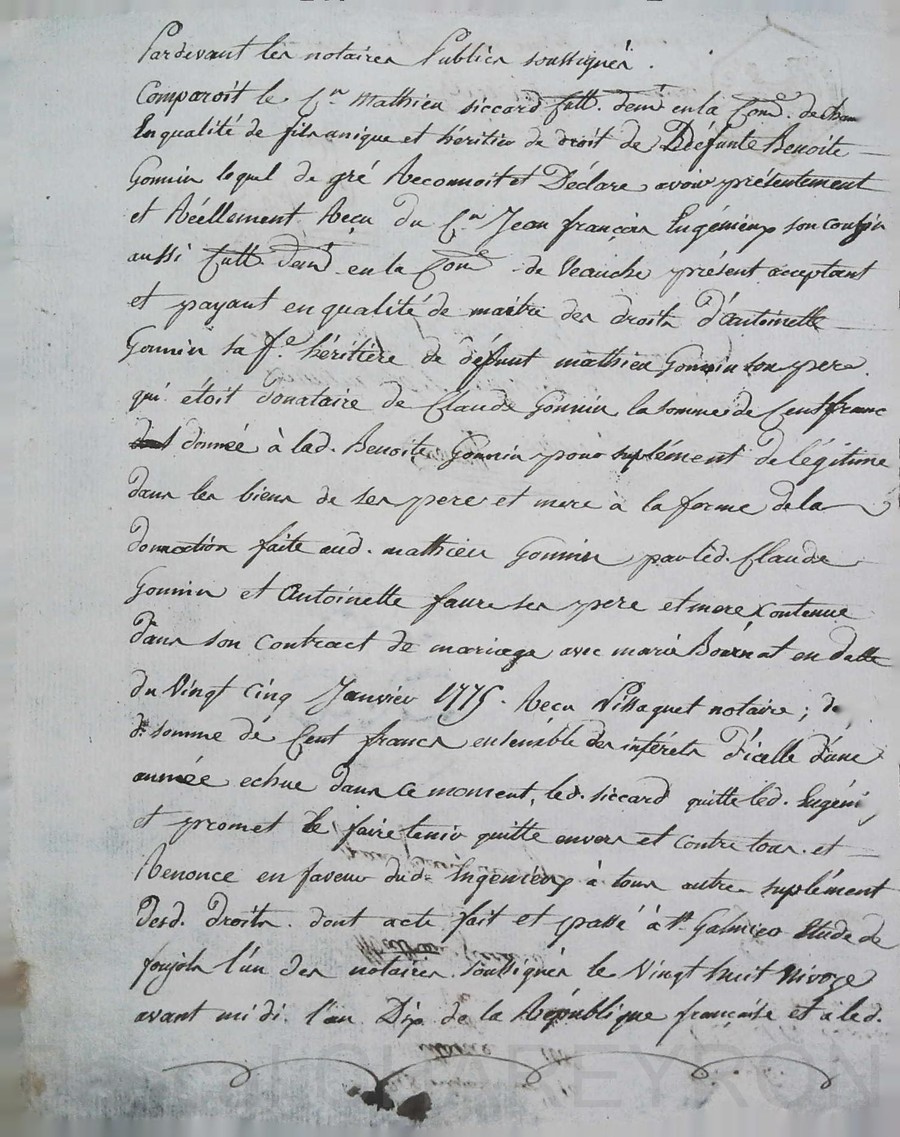 Pardevant les notaires Publics soussignés.
Comparoit le Cen Mathieu Siccard cult. demt en la Come. de
En qualité de fils unique et héritier de droit de Défunte Benoite
Gonnin lequel de gré Reconnoit et Déclare avoir présentement
et Réellement Reçu du Cen Jean françois Engénieux son cousin
aussi Cultr. demt. en la Come de Veauche présent acceptant
et payant en qualité de maitre des droits d'antoinette
Gonnin sa fe. héritière de défunt mathieu Gonnin son pere
qui étoit donataire de Claude Gonnin la somme de Cent franc
donnée à lad. Benoite Gonnin pour suplément de légitime
dans les biens de ses pere et mere à la forme de la
donnation faite aud. mathieu Gonnin par led. Claude
Gonnin et Antoinette faure ses pere et mere contenue
dans son contract de mariage avec marie Bournat en datte
du Vingt cinq Janvier 1775. Recu Pissaquet notaire; de
de somme de Cent francs ensemble des intérets d'icelle d'une
année echue dans ce moment, led. Siccard quitte led. Engéni
et promet le faire tenir quitte envers et contre tous. et
Renonce en faveur dud. Ingénieux à tous autre suplément
desd. droits. dont acte fait et passé à St. Galmier Etude de
foujols l'un des notaires soussignés le Vingt huit Nivoze
avant midi l'an Dix de la République française et a led.
JOHAPEYRON